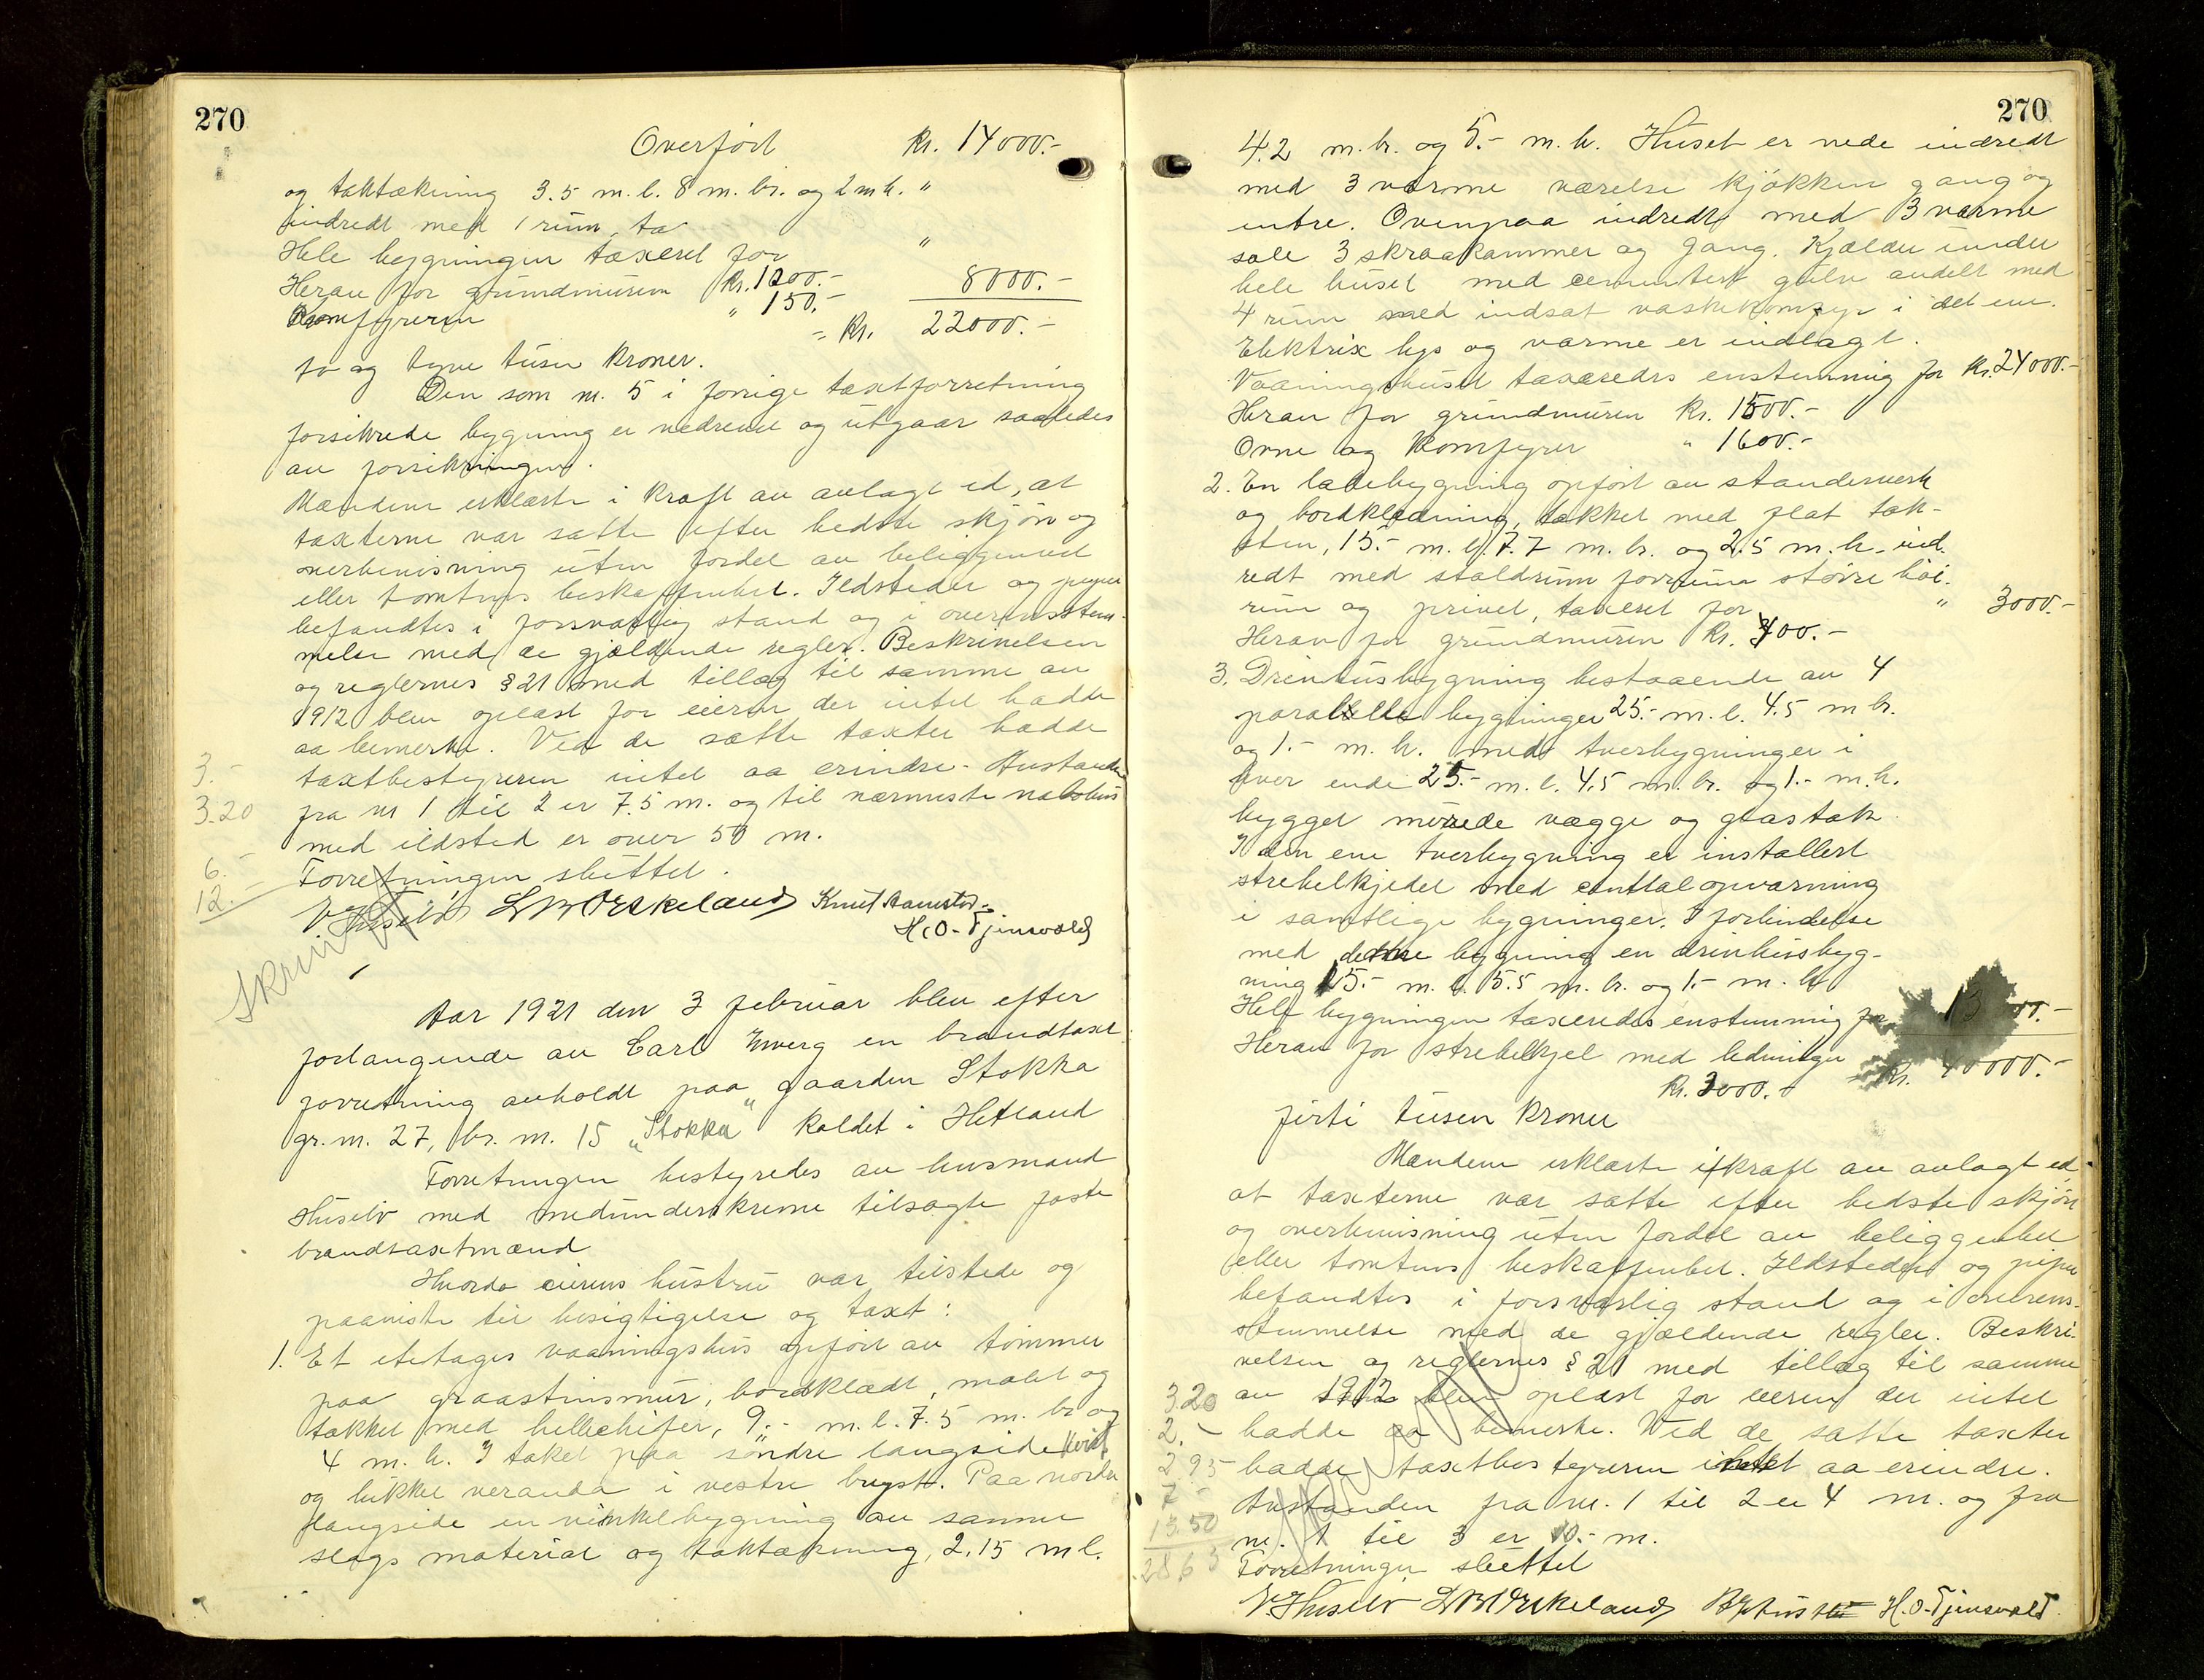 270
Overført Kr. 14000.-
og taktækning 3.5 m.l. 8 m. br. og 2 m h. "
indredt med 1 rum, ta
Hele bygningen taxeret for "
Herav for grundmuren Kr. 1200.- 8000.-
Komfyreren " 150.-
- Kr. 22000.-
to og tyve tusen kroner.
Den som nr. 5 i forrige taxtforretning
forsikrede bygning er nedrevet og utgaar saaledes
av forsikringen.
Mændene erklærte i kraft av avlagt ed, at
taxterne var satte efter bedste skjøn og
overbevisning uten fordel av beliggenhet
eller tomtens beskaffenhet. Ildsteder og piper
befandtes i forsvarlig stand og i overensstem-
melse med de gjældende regler. Beskrivelsen
og reglernes § 21 med tillæg til samme av
1912 blev oplæst for eieren der intet hadde
aa bemerke. Ved de satte taxter hadde
3.-
taxtbestyreren intet aa erindre. Avstanden
3.20
fra nr 1 til 2 er 7.5 m. og til nærmeste nabohus
med ildsted er over 50 m.
6.-
Forretningen sluttet.
12.-
V. Huselv L M Orskeland Knut
H. O. Tjensvold
Aar 1921 den 3 februar blev efter
forlangende av Carl en brandtaxt
forretning avholdt paa gaarden Stokka
gr. nr. 27, br. nr. 15 "Stokka" kaldet i Hetland
Forretningen bestyredes av lensmand
Huselv med medunderskrevne tilsagte faste
brandtaxtmænd
Hvorda eierens hustru var tilstede og
paaviste til besigtigelse og taxt:
1. Et etetages vaaningshus opført av tømmer
paa graastensmur, bordklædt, malet og
tækket med helleskifer, 9.- m.l. 7.5 m. br og
4 m. h. I taket paa søndre langside kvist
og lukket veranda i vestre bryst. Paa nordre
langside en vinkelbygning av samme
slags material og taktækning, 2.15 m l.
270
4.2 m. br. og 5.- m. h. Huset er nede indredt
med 3 varme værelse kjøkken gang og
entre. Ovenpaa indredt med 3 varme
sale 3 skraakammer og gang. Kjælder under
hele huset med cementert gulv avdelt med
4 rum med indsat vaskekomfyr i det ene.
Elektrix lys og varme er indlagt.
Vaaningshuset taxeredes enstemmig for Kr. 24000.-
Herav for grundmuren Kr. 1500.-
Ovne og Komfyrer " 1600.-
2. En ladebygning opført av standerverk
og bordklædning, tækket med flat tak-
sten, 15.- m.l. 7.7 m. br. og 2.5 m. h. ind-
redt med staldrum forrum større høi-
rum og privet, taxeret for " 3000.-
Herav for grundmuren Kr. 400.-
3. Drivhusbygning bestaaende av 4
paralelle bygninger 25.- m. l. 4.5 m br.
og 1.- m. h. med tverbygninger i
hver ende 25.- m. l. 4.5 m. br. og 1.- m. h.
bygget murede vægge og glastak.
I den ene tverbygning er installert
strebelkjedel med centralopvarming
i samtlige bygninger. I forbindelse
med denne bygning en drivhusbyg-
ning 15.- m. l. 5.5 m. br. og 1.- m. h.
Hele bygningen taxeredes enstemmig for 13000.-
Herav for strebelkjel med ledninger Kr. 40000.-
Kr. 3000.-
firti tusen kroner
Mændene erklærte i kraft av avlagt ed
at taxterne var satte efter bedste skjøn
og overbevisning uten fordel av beliggenhet
eller tomtens beskaffenhet. Ildsteder og piper
befandtes i forsvarlig stand og i overens-
stemmelse med de gjældende regler. Beskri-
velsen og reglernes § 21 med tillæg til samme
3.20
av 1912 blev oplæst for eieren der intet
2.-
hadde aa bemerke. Ved de satte taxter
2.95
hadde taxtbestyreren intet aa erindre.
7.-
Avstanden fra nr. 1 til 2 er 4 m. og fra
13.50
nr. 1 til 3 er 10.- m.
28.65
Forretningen sluttet
V. Huselv L M Orskeland H. O. Tjensvold